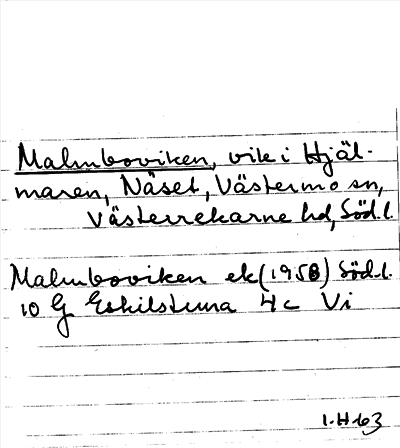 Malmboviken, vik i Hjäl-
maren, Näset, Västermo sn,
Västerrekarne hd, Söd.l.
Malmboviken ek (1958) Söd.l.
10 G Eskilstuna 4c Vi
1.H 63